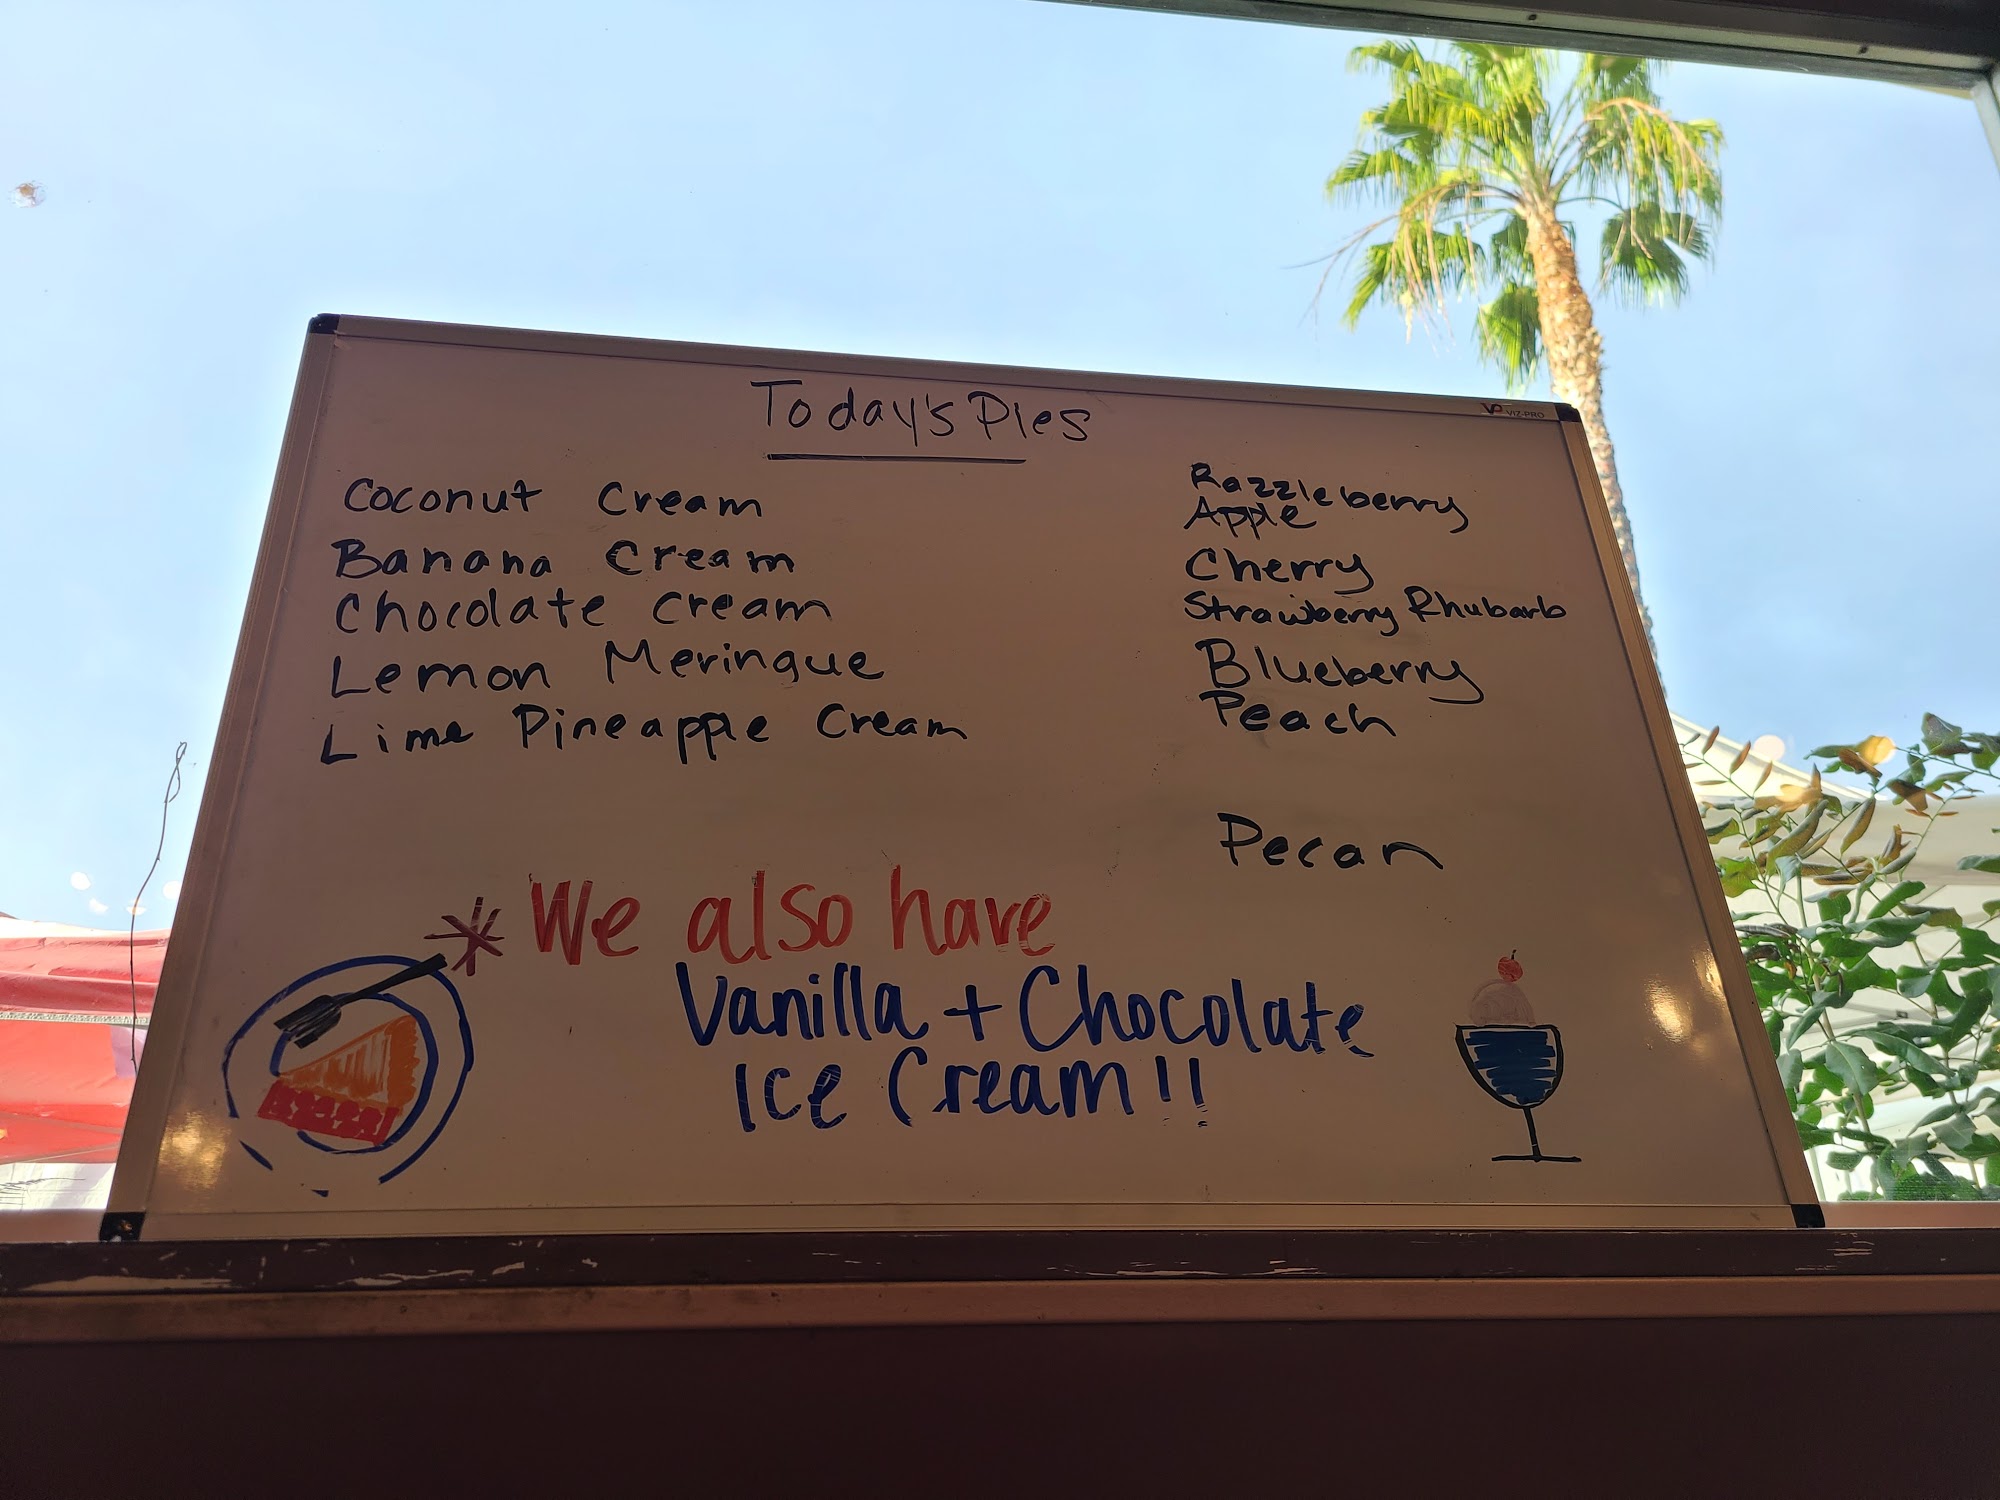 Today's Pies
VP VIZ-PRO
Coconut Cream
Banana Cream
Chocolate Cream
Lemon Meringue
Lime Pineapple Cream
Razzleberry
Apple
Cherry
Strawberry Rhubarb
Blueberry
Peach
Pecan
* We also have
Vanilla + Chocolate
Ice Cream!!